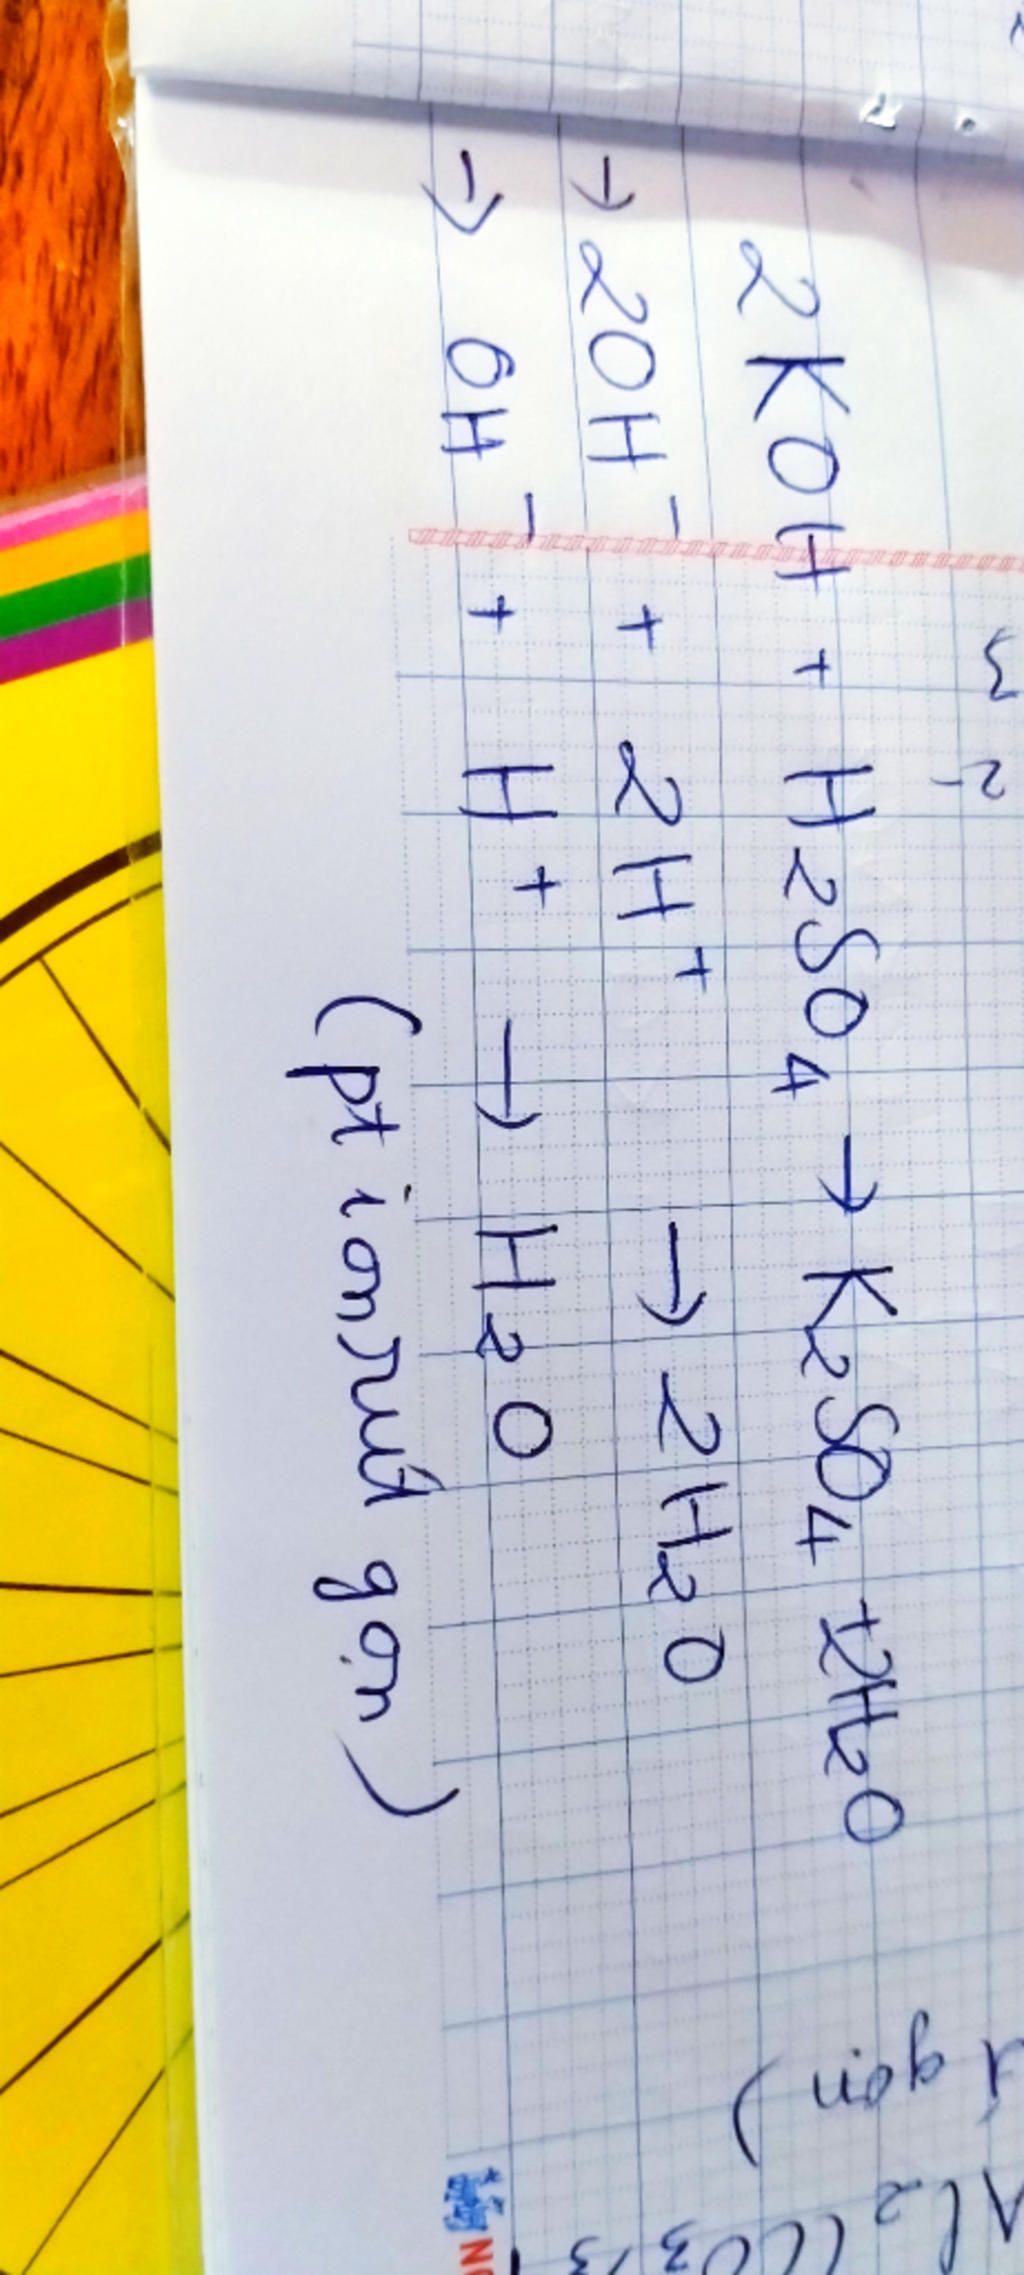 2KOH + H₂SO₄ → K₂SO₄ + 2H₂O
→ 2OH⁻ + 2H⁺ → 2H₂O
→ OH⁻ + H⁺ → H₂O
(pt ion rút gọn)
gọn)